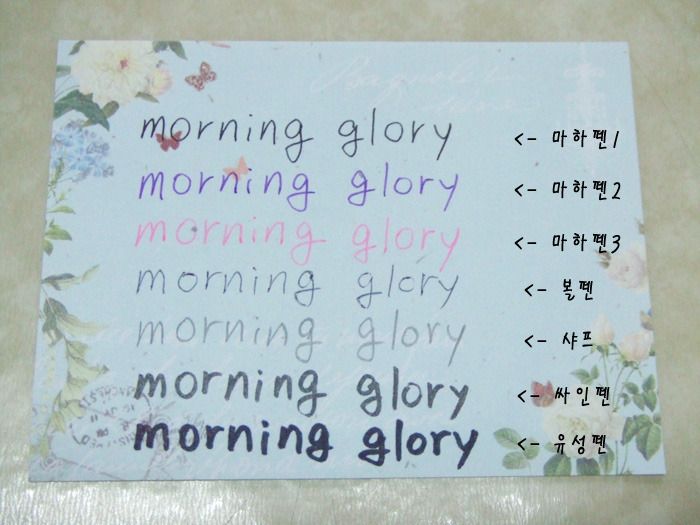 morning glory <- 마하펜1
morning glory <- 마하펜2
morning glory <- 마하펜3
morning glory <- 볼펜
morning glory <- 샤프
morning glory <- 싸인펜
morning glory <- 유성펜